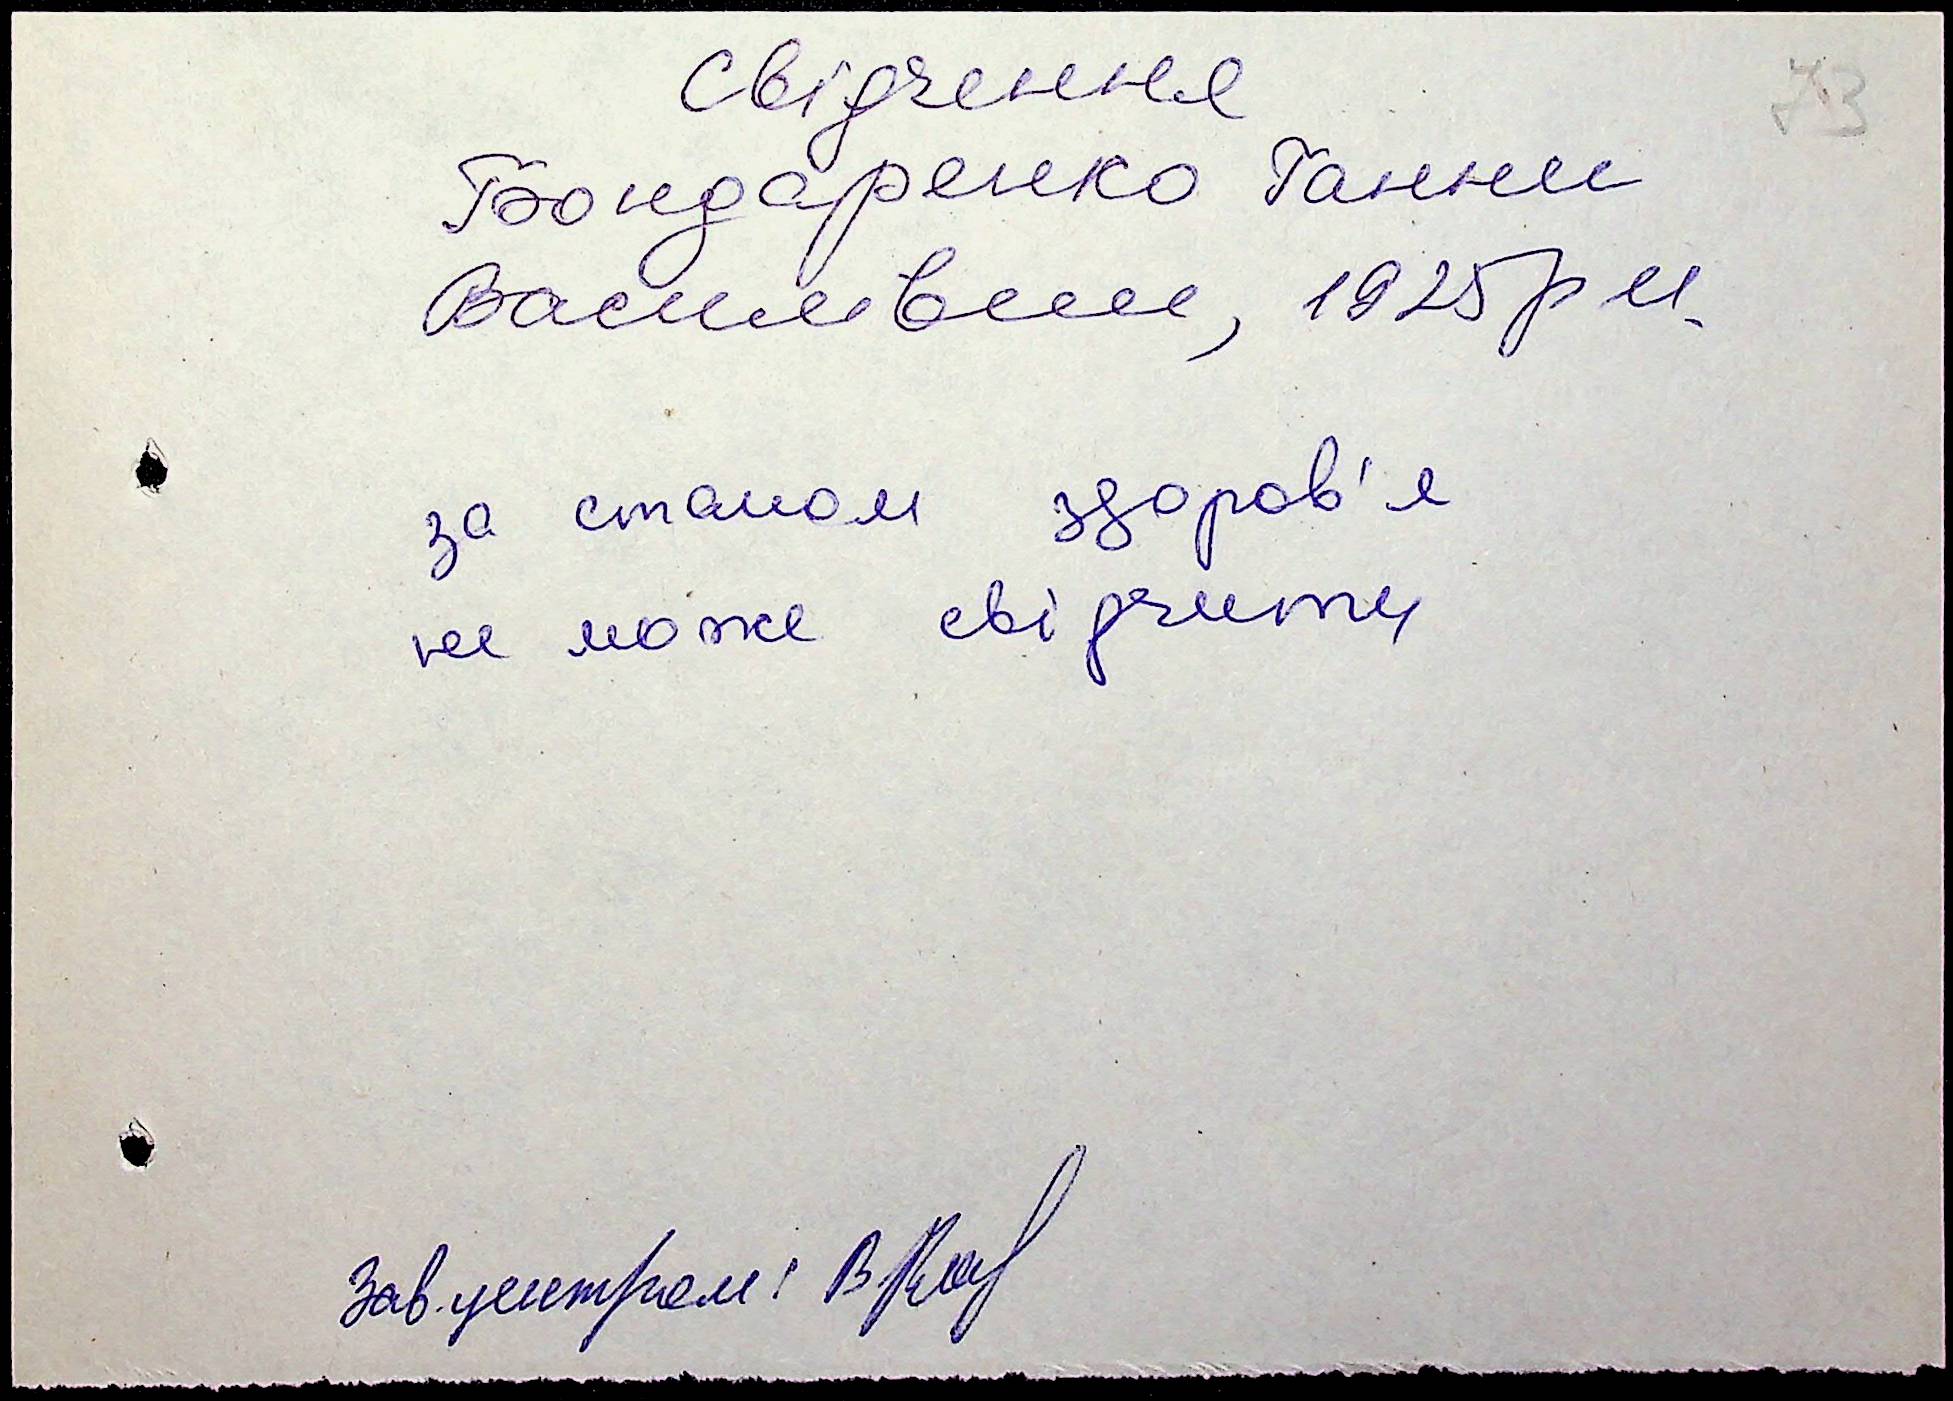 73
Свідчення
Бондаренко Ганни
Василівни, 1925р н.
за станом здоров'я
не може свідчити
Зав.центром: В